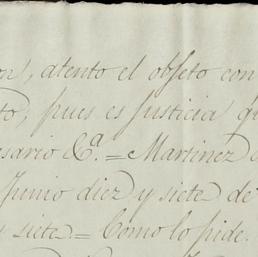 on, atento el obgeto con
to, pues es Justicia q
esario &a. = Martinez
Junio diez y siete de
siete = Como lo pide.